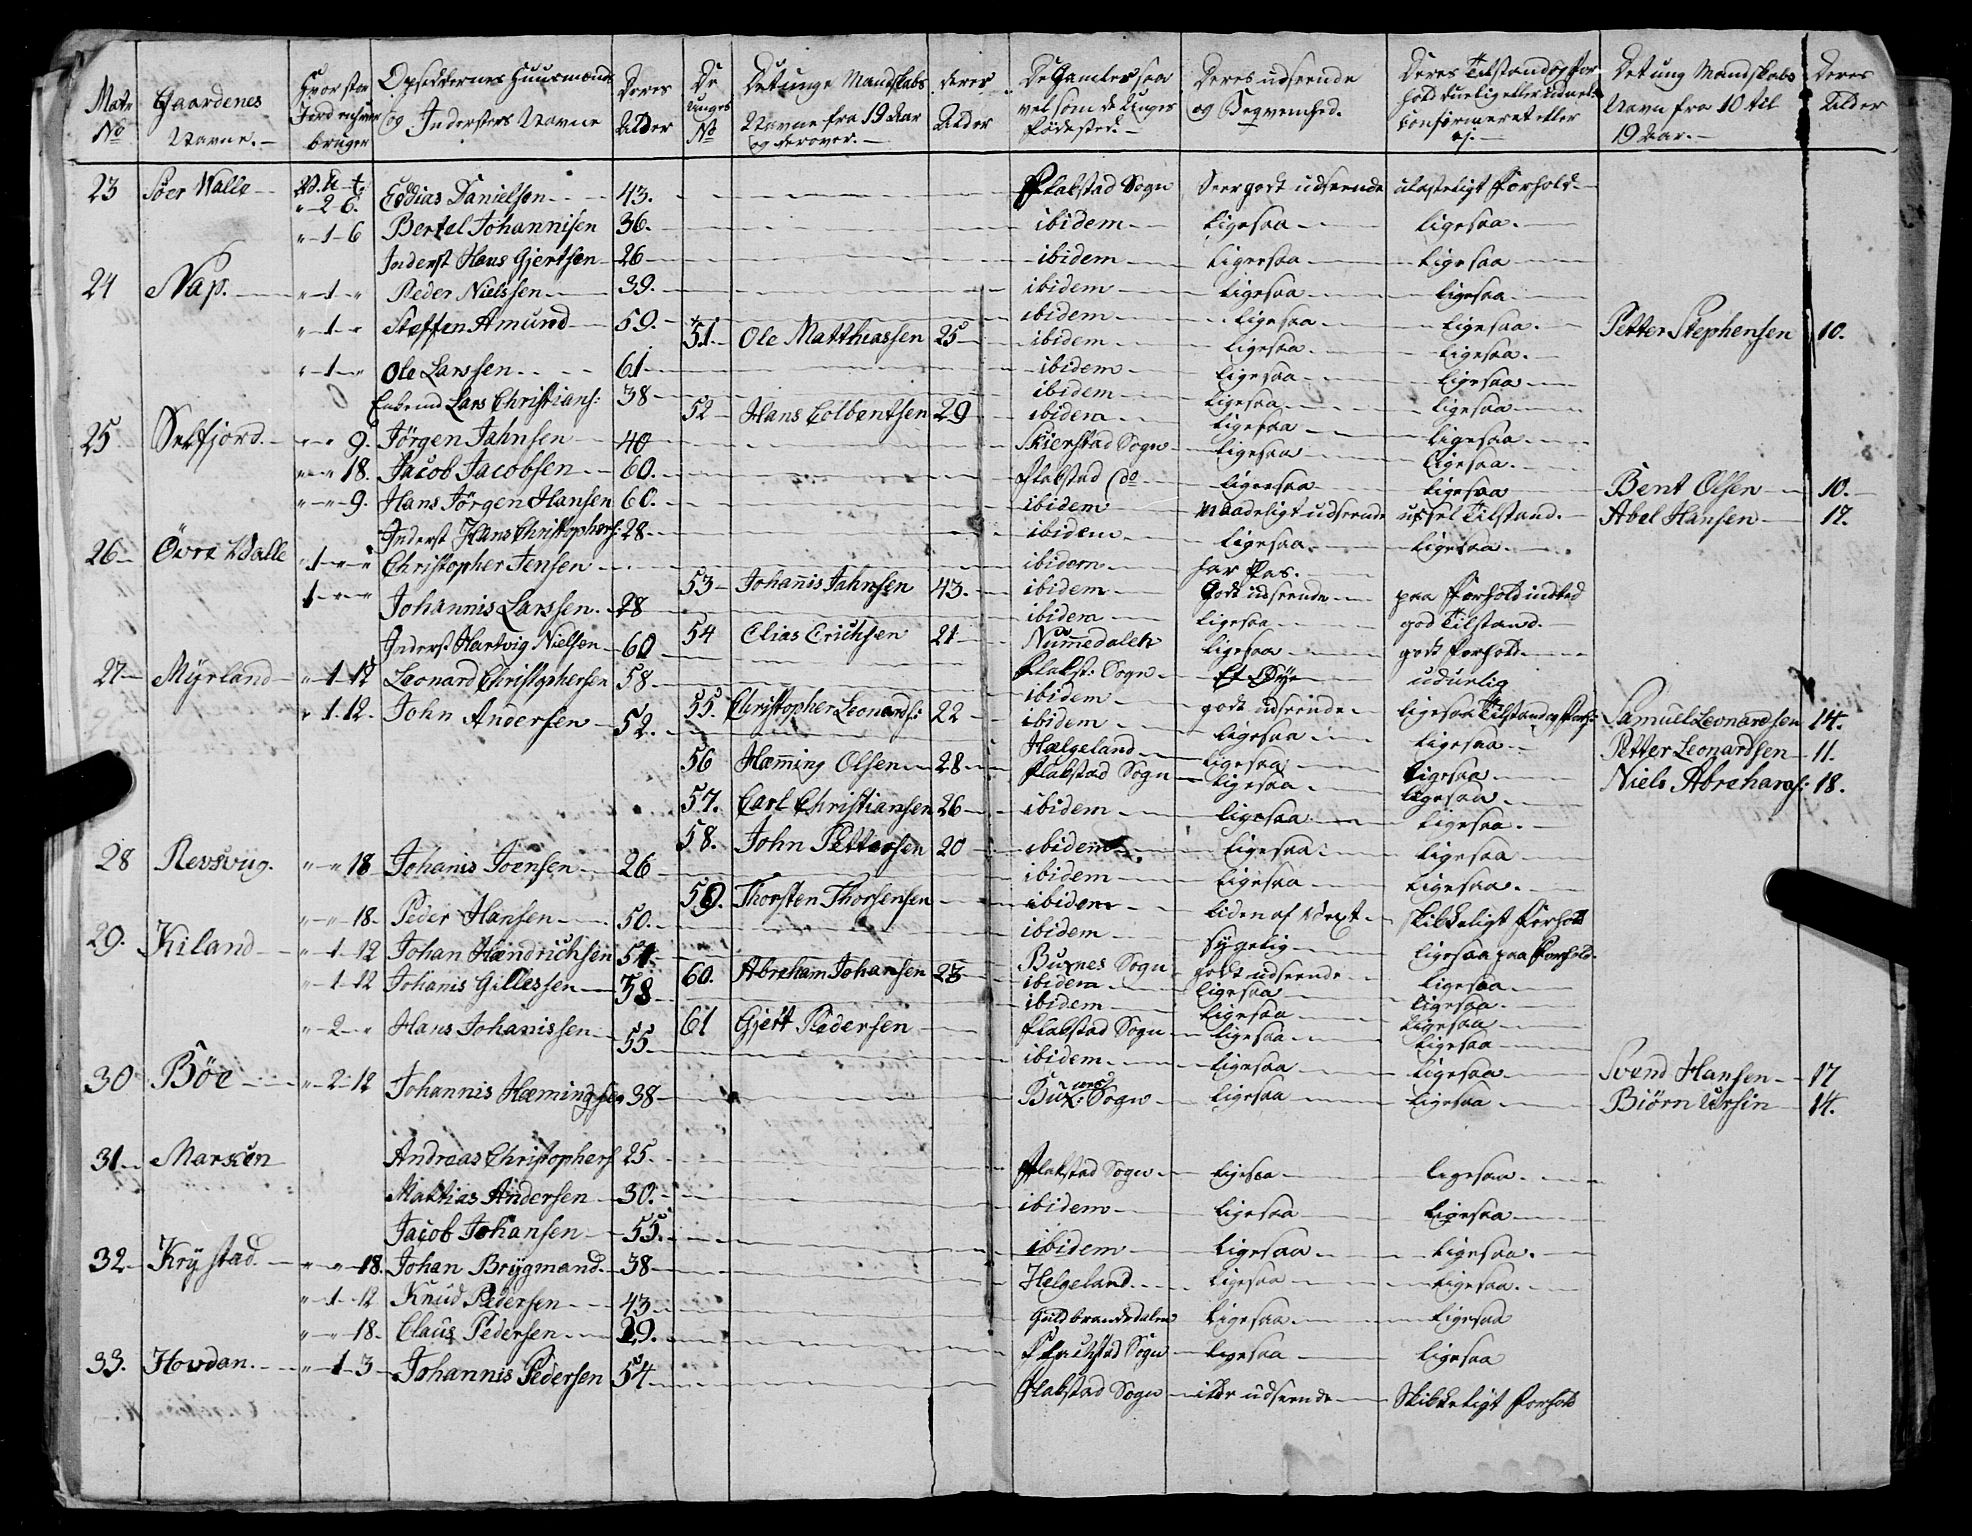 Matr No | Gaardenes Navne. | Hvor stor Jord enhver bruger | Opsiddernes Huusmænds og Indersters Navne | Deres Alder | De Unges No | Det unge Mandskabs Navne fra 19 Aar og derover. | deres Alder | De Gamles saa vel som de Unges fødested. | Deres udseende og Beqvemhed. | Deres Tilstand og forhold duelig eller udueliconfirmeret eller ej. | Det ung Mandskabs Navn fra 10 til 19 Aar. | Deres Alder
23 Söer Walle "2 6. Eddias Danielsen 43. Flakstad Sogn Seer godt udseende ulasteligt forhold
" 1 6 Bertel Johannisen 36. ibidem ligesaa ligesaa.
Inderst Hans Gjertsen 26 ibidem ligesaa ligesaa
24 Nap. " 1 " Peder Nielssen 39. ibidem ligesaa ligesaa
" 1 " Steffen Amund 59. ibidem ligesaa ligesaa. Petter Stephensen 10.
51. Ole Matthiassen 25 ibidem ligesaa. ligesaa.
" 1 " Ole Larssen 61 ibidem ligesaa ligesaa
Enkemd Lars Christians: 38 ibidem ligesaa ligesaa
52 Hans Colbentsen 29 ibidem ligesaa ligesaa
25 Selfjord. " " 9. Jörgen Jahnsen 40 Skierstad Sogn ligesaa ligesaa.
" " 18. Jacob Jacobsen 60. Flakstad do ligesaa ligesaa Bent Olsen 10.
" " 9. Hans Jörgen Hansen 60. ibidem maadeligt udseende ussel Tilstand. Abel Hansen 17.
Inderst Hans Christophers: 28 ibidem ligesaa. ligesaa
26 Övre Walle 1 " " Christopher Jensen ibidem har Pas.
53 Johannis Jahnsen 43. ibidem Godt udseende paa forhold indted
1 " " Johannis Larssen. 28 ibidem ligesaa god Tilstand.
54 Elias Erichsen 21 Nummedalen ligesaa godt forhold
Inderst Hartvig Nielsen 60 Flakst: Sogn Et Øye uduelig
27 Myrland " 1 12 Leonard Christophersen 58 ibidem godt udseende ligesaa Tilstand og forh: Samuel Leonardsen 14.
55. Christopher Leonards: 22 ibidem ligesaa ligesaa. Petter Leonardsen 11.
" 1. 12. John Andersen 52. Hælgeland ligesaa ligesaa Niels Abrahams: 18.
56 Hæming Olsen 28 Flakstad Sogn ligesaa ligesaa
57. Carl Christiansen 26 ibidem ligesaa ligesaa.
58. John Pettersen 20 ibidem ligesaa. ligesaa
28 Revsvug. " " 18 Johanis Joensen 26 ibidem ligesaa ligesaa.
59. Thorsten Thorsensen ibidem liden af Vext skikkeligt forhold
" " 18. Peder Hansen 50. ibidem sygelig ligesaa paa forhold.
29. Kiland " 1 12 Johan Hændrichsen 51. Buxnes Sogn godt udseende ligesaa
60. Abraham Johansen 23 ibidem ligesaa ligesaa.
" 1 12 Johanis Gillessen 38 ibidem ligesaa ligesaa
61 Gjert Pedersen Flakstad Sogn ligesaa ligesaa
" 2 " Hans Johanissen 55 ibidem ligesaa ligesaa Svend Hansen 17
30 Böe " 2 12 Johannis Hæmingsen 38 Bux: Sogn ligesaa ligesaa Biörn Ursin 14.
31 Marken Andreas Christophers 25. Flakstad Sogn ligesaa ligesaa
Mathias Andersen 30. ibidem ligesaa ligesaa
Jacob Johansen 55. ibidem ligesaa ligesaa.
32 Krystad " " 18. Johan Brygmand. 38 Helgeland ligesaa ligesaa.
" 1 12 Knud Pedersen 43 Guldbrandsdalen ligesaa ligesaa
" " 18. Claus Pedersen 29. Flachstad Sogn ligesaa ligesaa
33. Hovdan. " 1 3 Johannis Pedersen 54 Flakstad Sogn ilde udseende Skikkeligt forhold